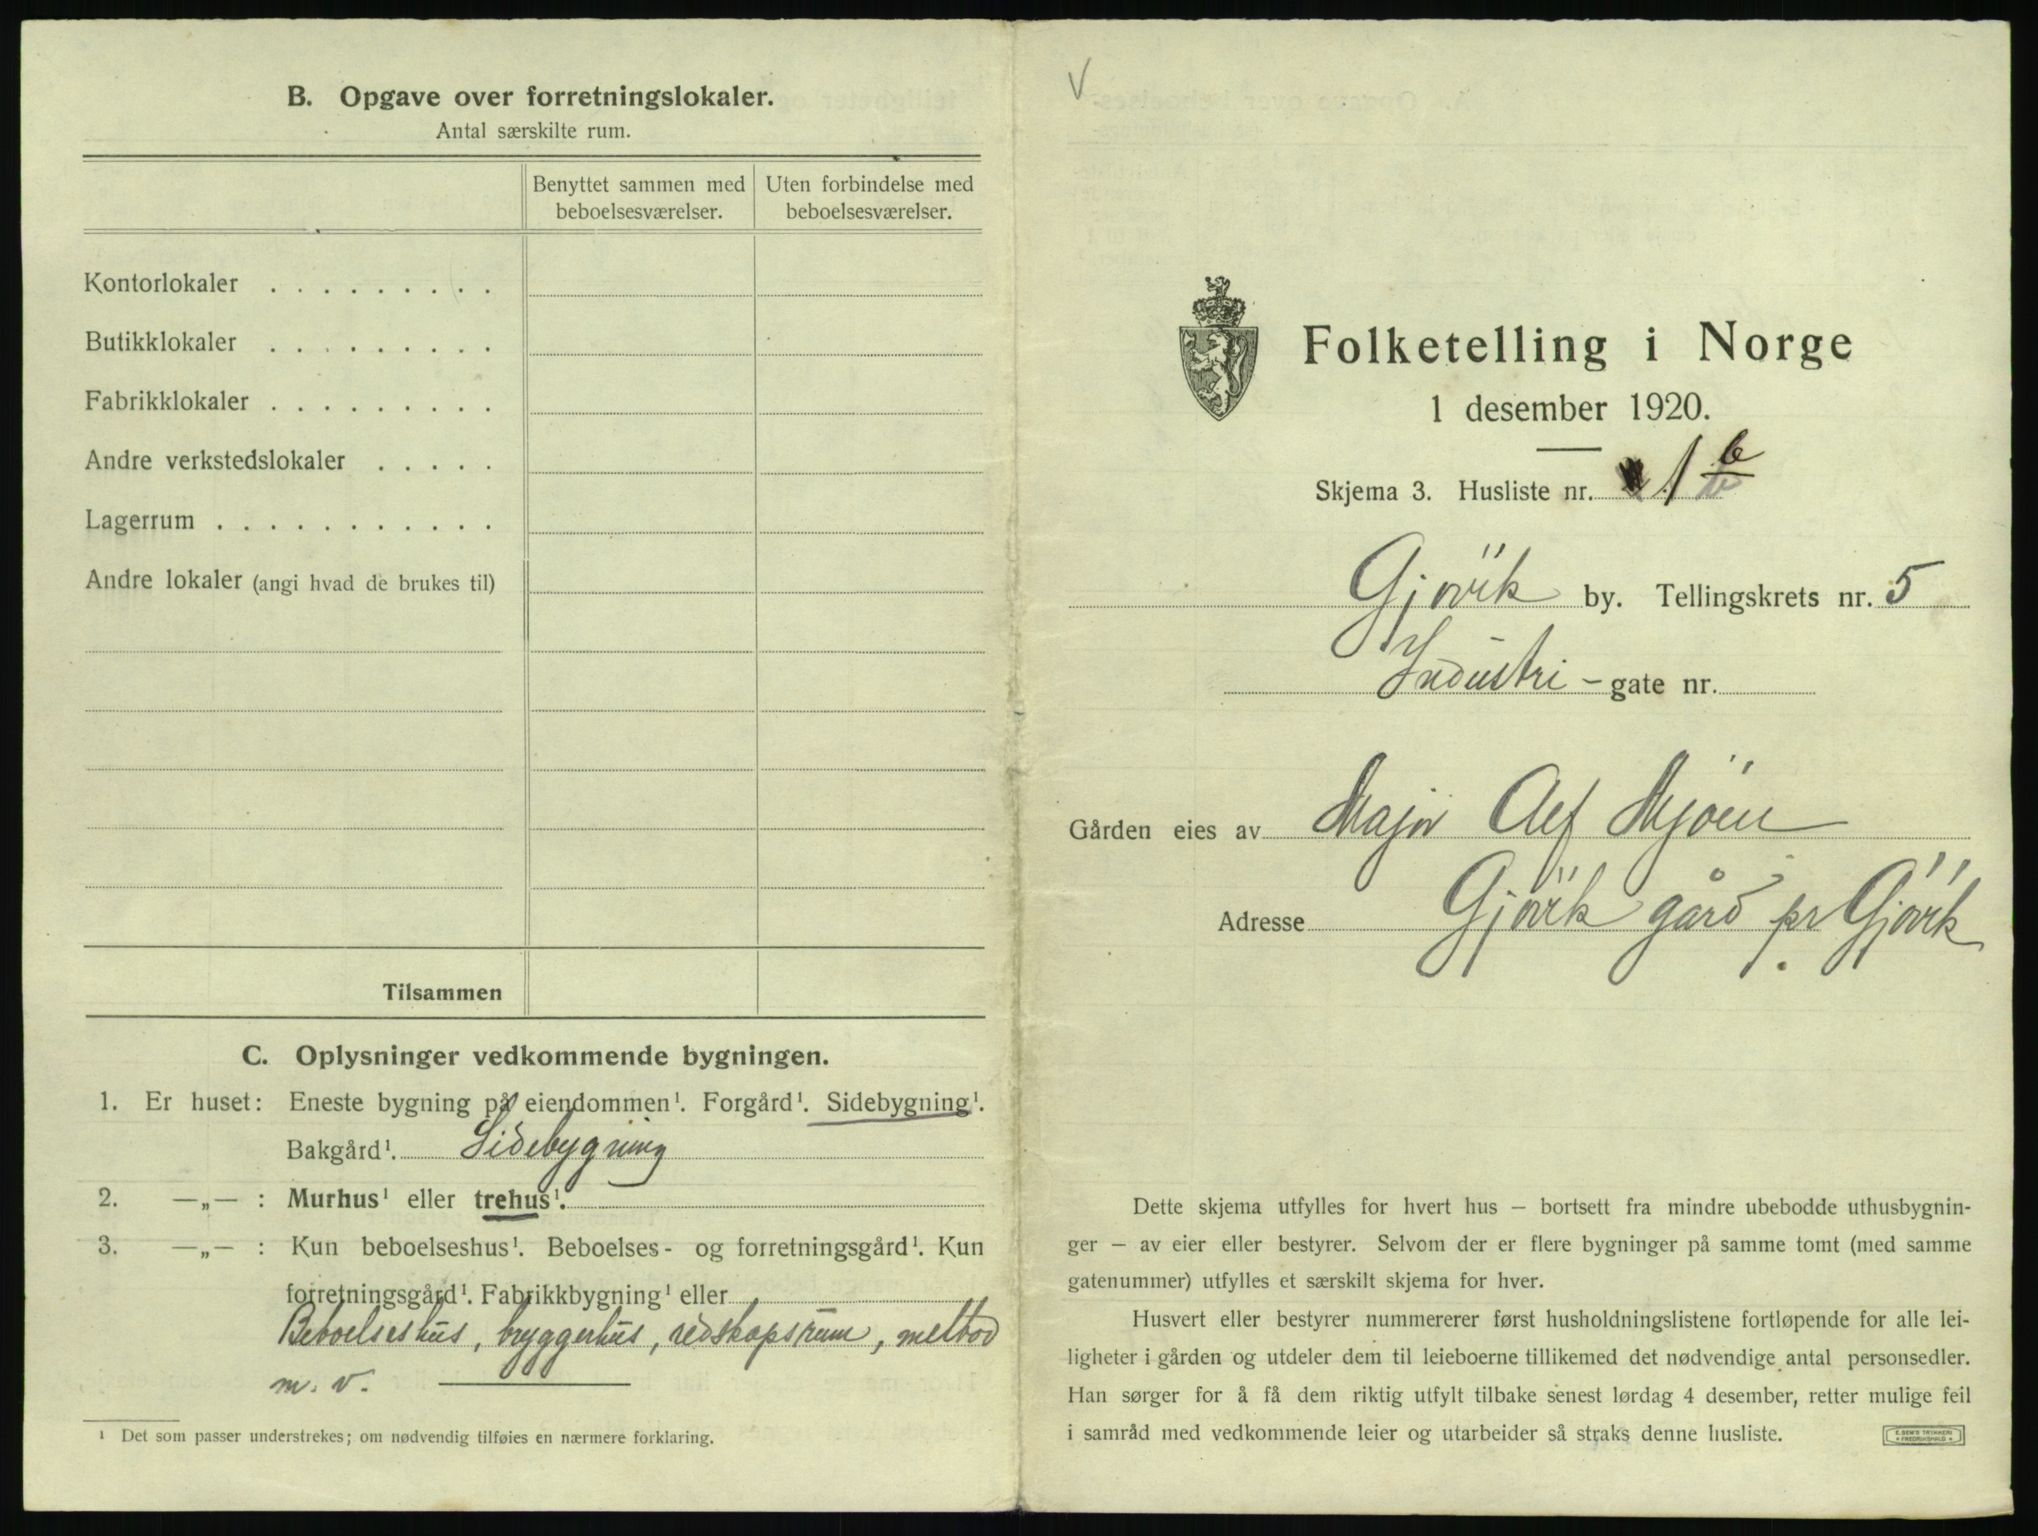 B. Opgave over forretningslokaler.
Antal særskilte rum.
Benyttet sammen med beboelsesværelser.
Uten forbindelse med beboelsesværelser.
Kontorlokaler . . . . . . . . .
Butikklokaler . . . . . . . . .
Fabrikklokaler . . . . . . . . .
Andre verkstedslokaler . . . . .
Lagerrum . . . . . . . . . . . .
Andre lokaler (angi hvad de brukes til)
Tilsammen
C. Oplysninger vedkommende bygningen.
1. Er huset: Eneste bygning på eiendommen¹. Forgård¹. Sidebygning¹.
Bakgård¹. Sidebygning
2. —„— : Murhus¹ eller trehus¹.
3. —„— : Kun beboelseshus¹. Beboelses- og forretningsgård¹. Kun
forretningsgård¹. Fabrikkbygning¹ eller
Beboelseshus, bryggerhus, redskapsrum, melbod
m. v.
¹ Det som passer understrekes; om nødvendig tilføies en nærmere forklaring.
V
Folketelling i Norge
1 desember 1920.
Skjema 3. Husliste nr. 1 b
Gjövik by. Tellingskrets nr. 5
Industri - gate nr.
Gården eies av Major Alf Mjöen
Adresse Gjövik gård pr Gjövik
Dette skjema utfylles for hvert hus – bortsett fra mindre ubebodde uthusbygnin-
ger – av eier eller bestyrer. Selvom der er flere bygninger på samme tomt (med samme
gatenummer) utfylles et særskilt skjema for hver.
Husvert eller bestyrer nummererer først husholdningslistene fortløpende for alle lei-
ligheter i gården og utdeler dem til leieboerne tillikemed det nødvendige antal personsedler.
Han sørger for å få dem riktig utfylt tilbake senest lørdag 4 desember, retter mulige feil
i samråd med vedkommende leier og utarbeider så straks denne husliste.
E. SEM'S TRYKKERI
FREDRIKSHALD